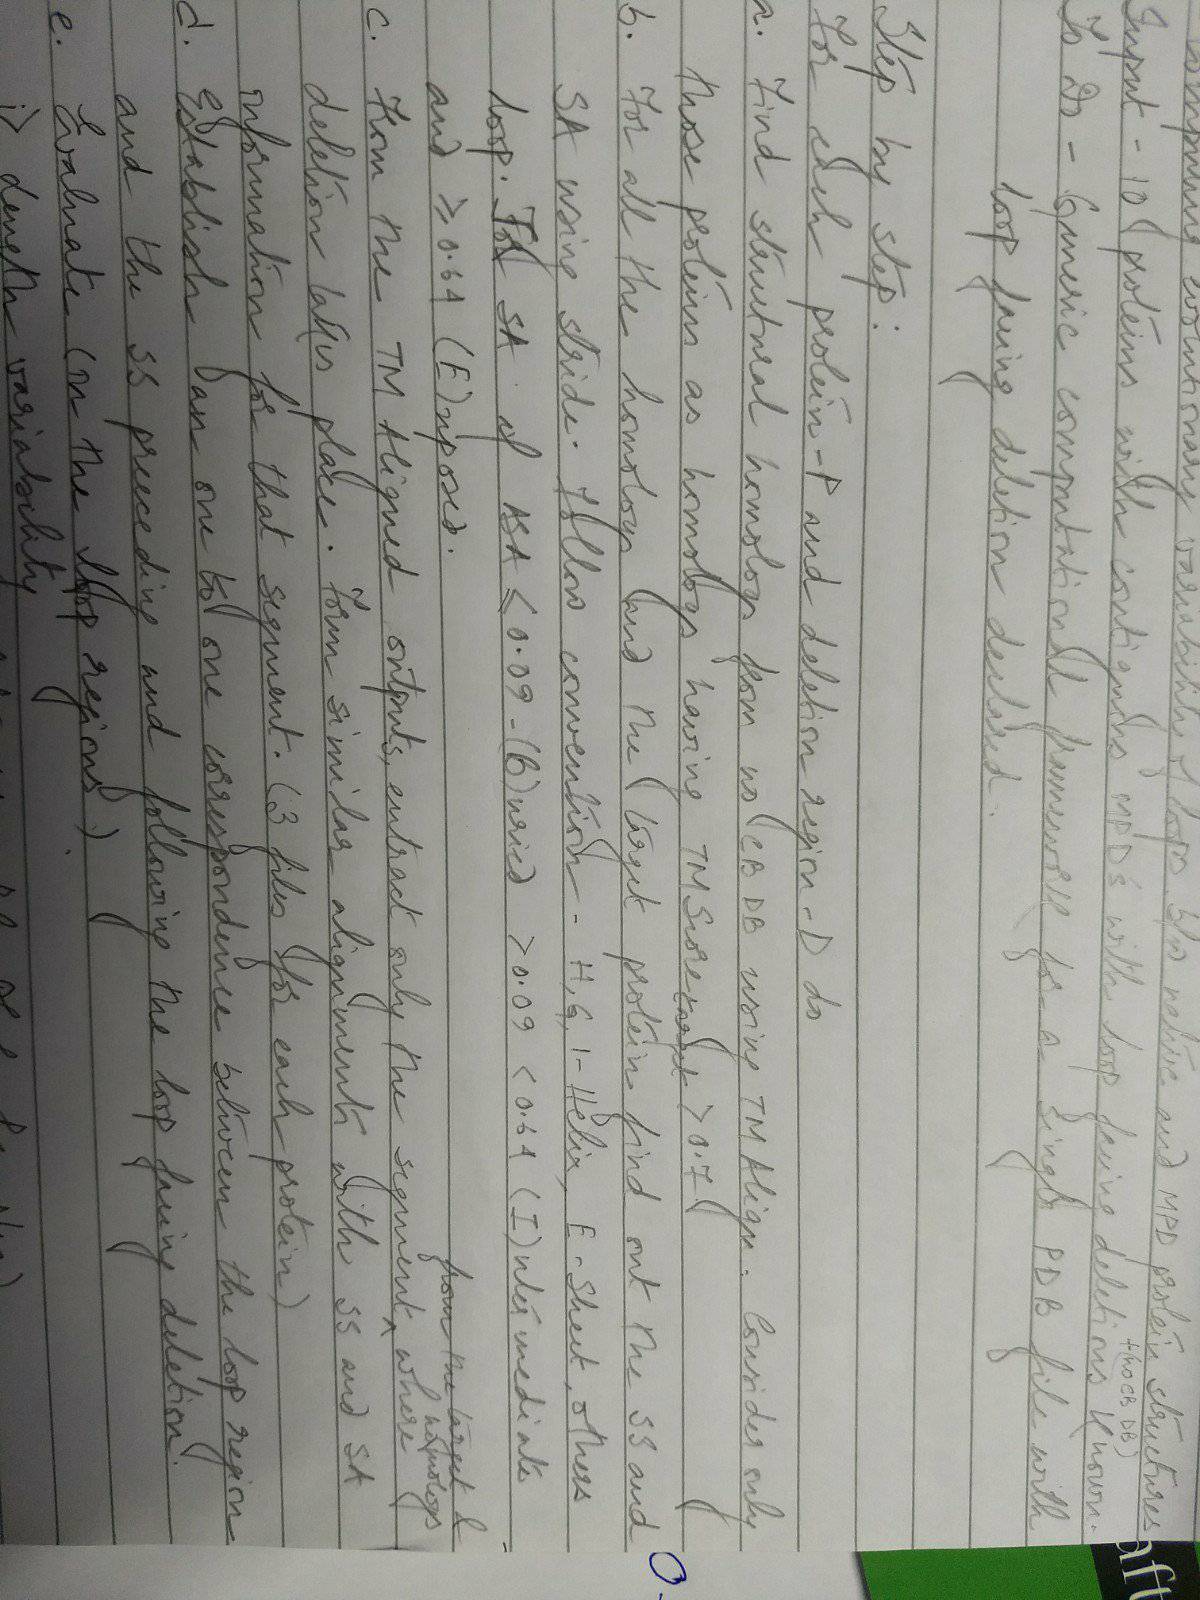 Comparing evolutionary variability of loops b/n native and MPD protein structures
Input - 10 proteins with contiguous MPD's with loop facing deletions known.
+ (no CB DB)
To Do - Generic computational framework for a single PDB file with
loop facing deletion declared.
Step by step:
For each protein-P and deletion region-D do
a. Find structural homologs from no CB DB using TM Align. Consider only
those proteins as homologs having TM Score target > 0.7
b. For all the homologs and the target protein find out the SS and
SA using stride. Follow convention - H, G, I - Helix, E - Sheet, others
loop. For SA if ASA ≤ 0.09 - (B)uried > 0.09 < 0.64 (I)ntermediate
and ≥ 0.64 (E)xposed.
from the target & homologs
c. From the TM Aligned outputs, extract only the segment ^ where
deletion takes place. Form similar alignments with SS and SA
information for that segment. (3 files for each protein)
d. Establish an one to one correspondence between the loop region
and the SS preceeding and following the loop facing deletion.
e. Evaluate (in the loop regions)
i) length variability
aft